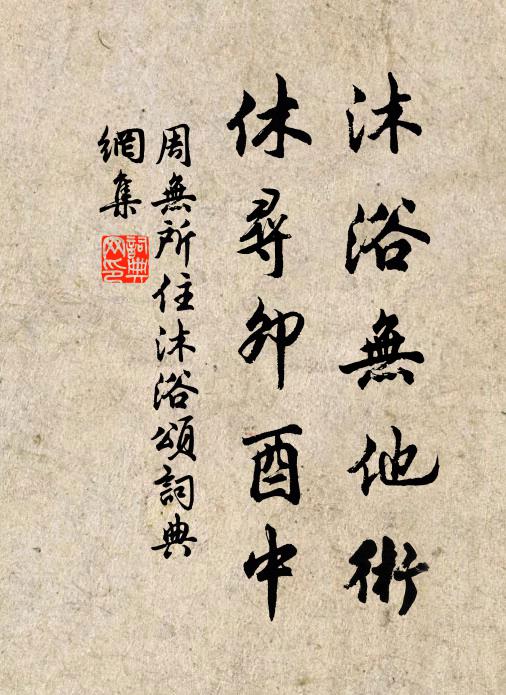 沐浴無他術
休尋卯酉中
周無所住沐浴頌詞典
網集
詞典
网印